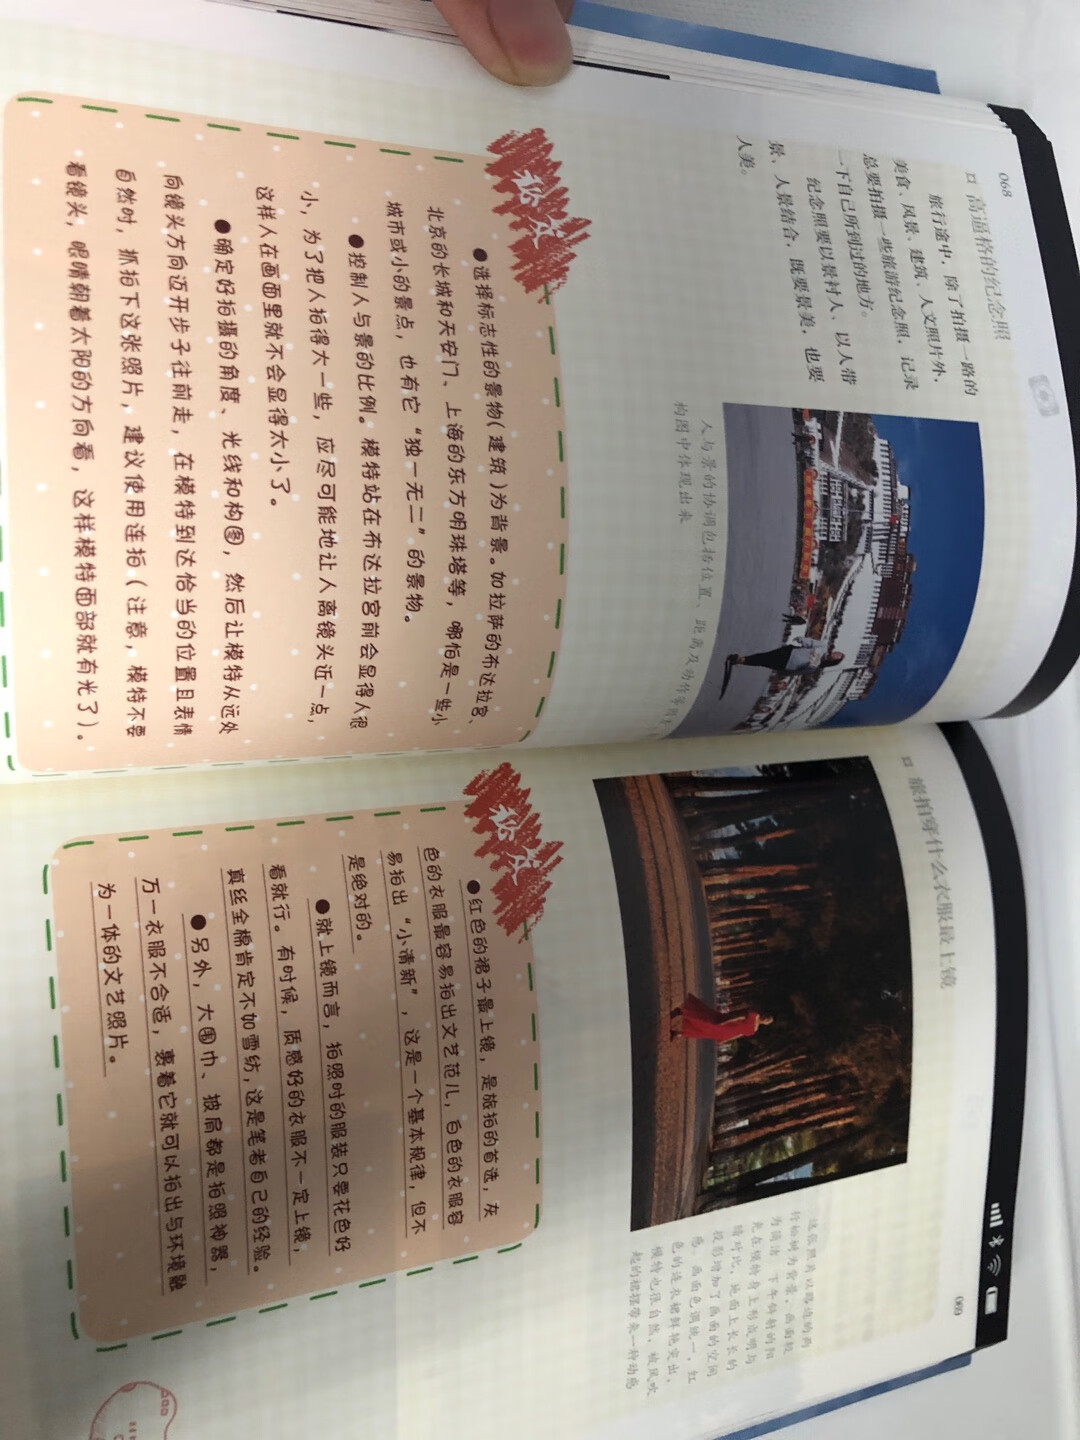 068
高逼格的纪念照
旅行途中，除了拍摄一路的
美食、风景、建筑、人文照片外，
总要拍摄一些旅游纪念照，记录
一下自己所到过的地方。
纪念照要以景衬人，以人带
景，人景结合，既要景美，也要
人美。
人与景的协调包括位置、距离及动作等
构图中体现出来
秘笈
●选择标志性的景物（建筑）为背景。如拉萨的布达拉宫、
北京的长城和天安门、上海的东方明珠塔等，哪怕是一些小
城市或小的景点，也有它“独一无二”的景物。
●控制人与景的比例。模特站在布达拉宫前会显得人很
小，为了把人拍得大一些，应尽可能地让人离镜头近一点，
这样人在画面里就不会显得太小了。
●确定好拍摄的角度、光线和构图，然后让模特从远处
向镜头方向迈开步子往前走，在模特到达恰当的位置且表情
自然时，抓拍下这张照片，建议使用连拍（注意，模特不要
看镜头，眼睛朝着太阳的方向看，这样模特面部就有光了）。
旅拍穿什么衣服最上镜
069
这张照片以路边的两
行松树为背景，画面极
为简洁，下午斜射的阳
光在模特身上形成明与
暗对比，地面上长长的
投影增加了画面的空间
感。画面色调统一，红
色的连衣裙鲜艳突出，
模特也很自然，被风吹
起的裙摆带来一种动感
秘笈
●红色的裙子最上镜，是旅拍的首选，灰
色的衣服最容易拍出文艺范儿，白色的衣服容
易拍出“小清新”，这是一个基本规律，但不
是绝对的。
●就上镜而言，拍照时的服装只要花色好
看就行。有时候，质感好的衣服不一定上镜，
真丝全棉肯定不如雪纺，这是笔者自己的经验。
●另外，大围巾、披肩都是拍照神器，
万一衣服不合适，裹着它就可以拍出与环境融
为一体的文艺照片。